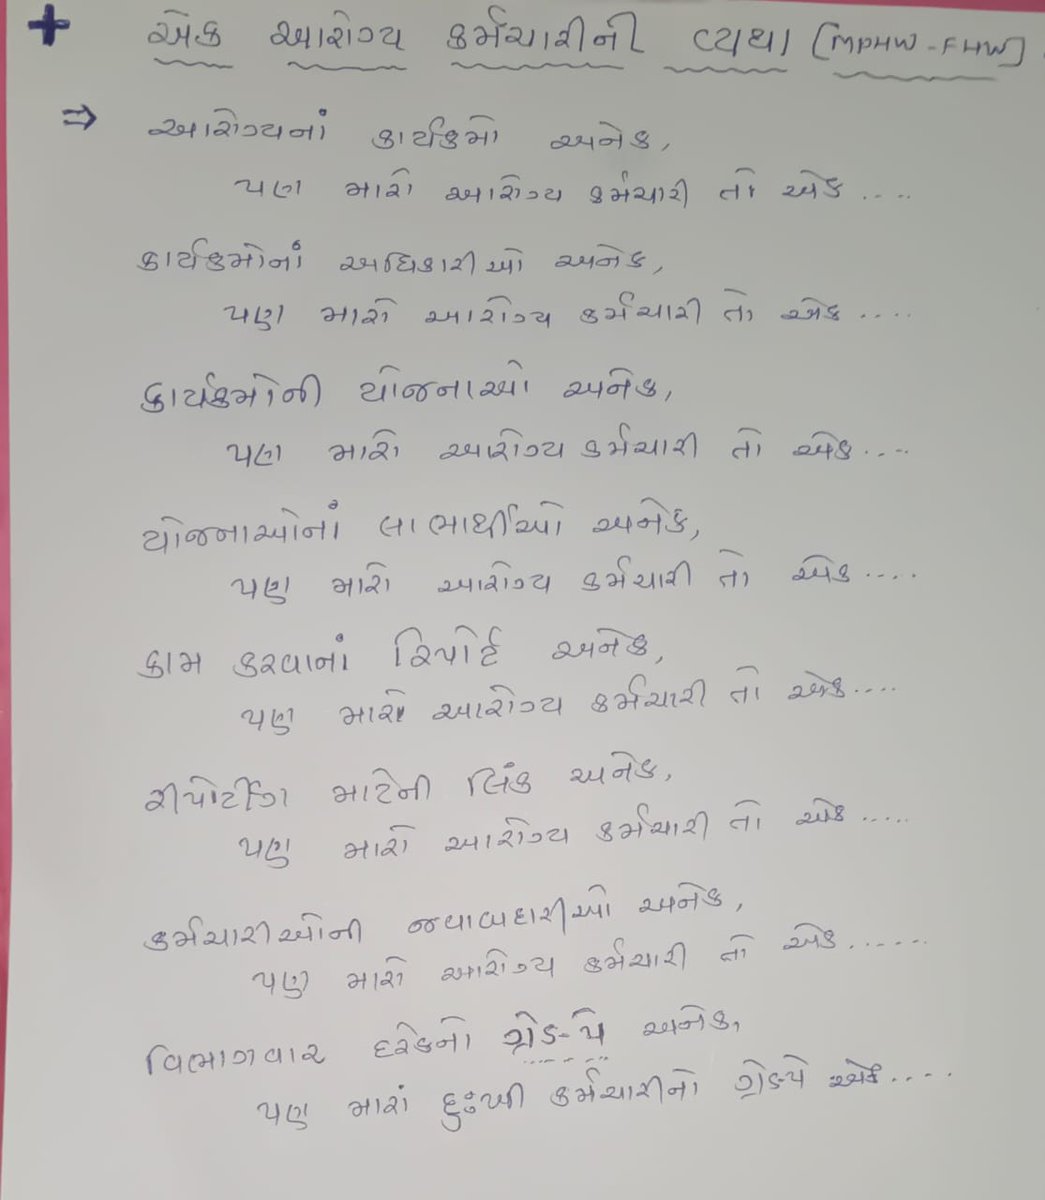 + એક આરોગ્ય કર્મચારીની વ્યથા (MPHW-FHW)
⇒ આરોગ્યનાં કાર્યક્રમો અનેક,
પણ મારો આરોગ્ય કર્મચારી તો એક....
કાર્યક્રમોનાં અધિકારીઓ અનેક,
પણ મારો આરોગ્ય કર્મચારી તો એક....
કાર્યક્રમોની યોજનાઓ અનેક,
પણ મારો આરોગ્ય કર્મચારી તો એક....
યોજનાઓનાં લાભાર્થીઓ અનેક,
પણ મારો આરોગ્ય કર્મચારી તો એક....
કામ કરવાનાં રિપોર્ટ અનેક,
પણ મારો આરોગ્ય કર્મચારી તો એક....
રીપોર્ટીંગ માટેની લિંક અનેક,
પણ મારો આરોગ્ય કર્મચારી તો એક.....
કર્મચારીઓની જવાબદારીઓ અનેક,
પણ મારો આરોગ્ય કર્મચારી તો એક......
વિભાગવાર દરેકનો ગ્રેડ-પે અનેક,
પણ મારાં દુઃખી કર્મચારીનો ગ્રેડપે એક....